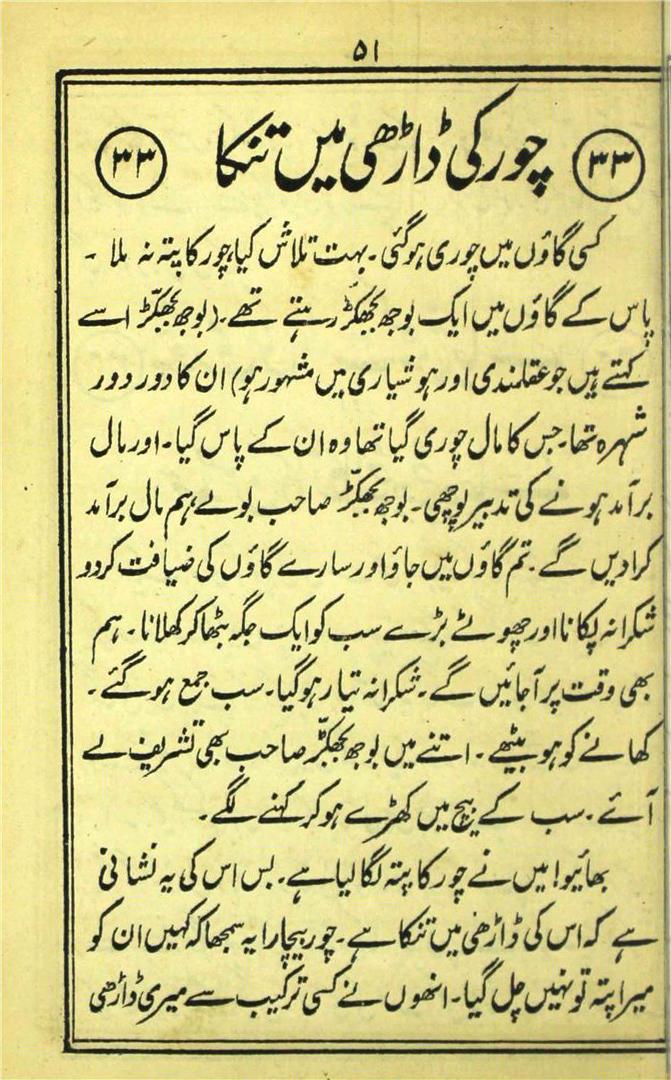 ۵۱
۳۳ چور کی ڈاڑھی میں تنکا ۳۳
کسی گاؤں میں چوری ہوگئی۔ بہت تلاش کیا، چور کا پتہ نہ ملا ۔
پاس کے گاؤں میں ایک بوجھ بجھکڑ رہتے تھے۔ (بوجھ بجھکڑ اسے
کہتے ہیں جو عقلمندی اور ہوشیاری میں مشہور ہو) ان کا دور دور
شہرہ تھا۔ جس کا مال چوری گیا تھا وہ ان کے پاس گیا۔ اور مال
برآمد ہونے کی تدبیر پوچھی۔ بوجھ بجھکڑ صاحب بولے، ہم مال برآمد
کرا دیں گے۔ تم گاؤں میں جاؤ اور سارے گاؤں کی ضیافت کر دو
شکرانہ پکانا اور چھوٹے بڑے سب کو ایک جگہ بٹھا کر کھلانا۔ ہم
بھی وقت پر آجائیں گے۔ شکرانہ تیار ہوگیا۔ سب جمع ہو گئے ۔
کھانے کو ہو بیٹھے ۔ اتنے میں بوجھ بجھکڑ صاحب بھی تشریف لے
آئے ۔ سب کے بیچ میں کھڑے ہو کر کہنے لگے۔
بھائیو! میں نے چور کا پتہ لگا لیا ہے۔ بس اس کی یہ نشانی
ہے کہ اس کی ڈاڑھی میں تنکا ہے۔ چور بیچارا یہ سمجھا کہ کہیں ان کو
میرا پتہ تو نہیں چل گیا۔ انھوں نے کسی ترکیب سے میری ڈاڑھی